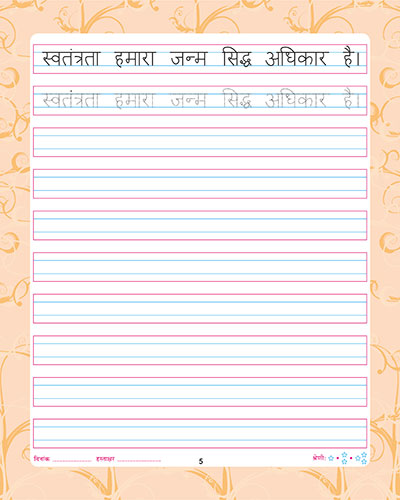 स्वतंत्रता हमारा जन्म सिद्ध अधिकार है।
स्वतंत्रता हमारा जन्म सिद्ध अधिकार है।
दिनांक ........................ हस्ताक्षर ........................ 5 श्रेणी: